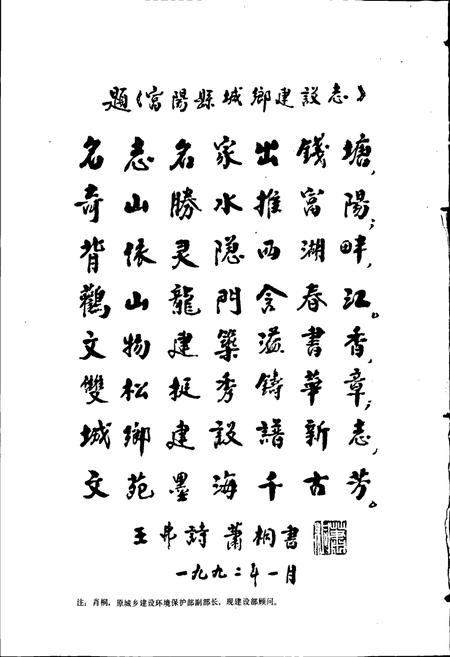 题《富陽縣城鄉建設志》
名志名家出錢塘，
奇山勝水推富陽；
背依灵隐西湖畔，
觀山龍門含春江。
文物建築溢書香，
雙松挺秀鑄華章；
城鄉建設譜新志，
文苑墨海千古芳。
王帛詩 蕭桐書
一九九二年一月
注：肖桐，原城乡建设环境保护部副部长，现建设部顾问。